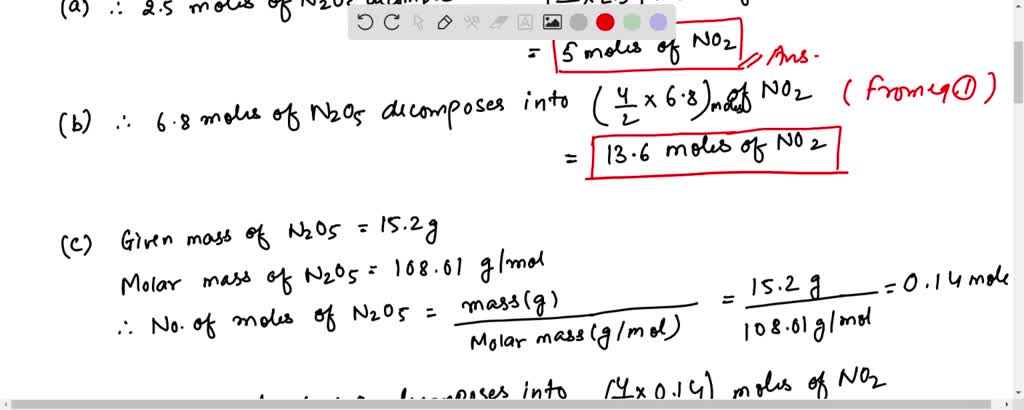 (a) ∴ 2.5 moles of N2O5
= 5 moles of NO2 Ans.
(b) ∴ 6.8 moles of N2O5 decomposes into (4/2 × 6.8) moles of NO2 (from eq ①)
= 13.6 moles of NO2
(c) Given mass of N2O5 = 15.2 g
Molar mass of N2O5 = 108.01 g/mol
∴ No. of moles of N2O5 = mass(g) / Molar mass(g/mol) = 15.2 g / 108.01 g/mol = 0.14 mole
decomposes into (4/2 × 0.14) moles of NO2